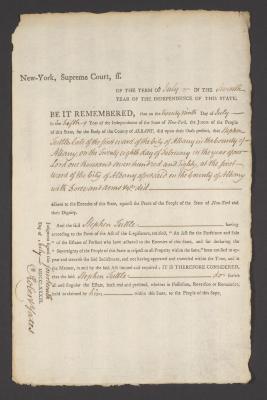 New-York, Supreme Court, ss.
OF THE TERM OF July IN THE Seventh
YEAR OF THE INDEPENDENCE OF THIS STATE.
BE IT REMEMBERED, That on the twenty Ninth Day of July
in the Year of the Independence of the State of New-York, the Jurors of the People
of this State, for the Body of the County of ALBANY, did upon their Oath present, that Stephen
Tuttle late of the first ward of the City of Albany in the County of
Albany, on the twenty eighth day of February in the year of our
Lord one thousand seven hundred and Eighty, at the first
ward of the City of Albany aforesaid in the County of Albany
with force and arms &c did
adhere to the Enemies of this State, against the Peace of the People of the State of New-York and
their Dignity.
And the said Stephen Tuttle having
according to the Form of the Act of the Legislature, entitled, "An Act for the Forfeiture and Sale
of the Estates of Persons who have adhered to the Enemies of this State, and for declaring the
Sovereignty of the People of this State in respect to all Property within the same," been notified to ap-
pear and traverse the said Indictment, and not having appeared and traversed within the Time, and in
the Manner, is and by the said Act limited and required: IT IS THEREFORE CONSIDERED,
that the said Stephen Tuttle do forfeit
all and singular the Estate, both real and personal, whether in Possession, Reversion or Remainder,
held or claimed by him within this State, to the People of this State.
Judgment signed this
Day of July
Robert Yates